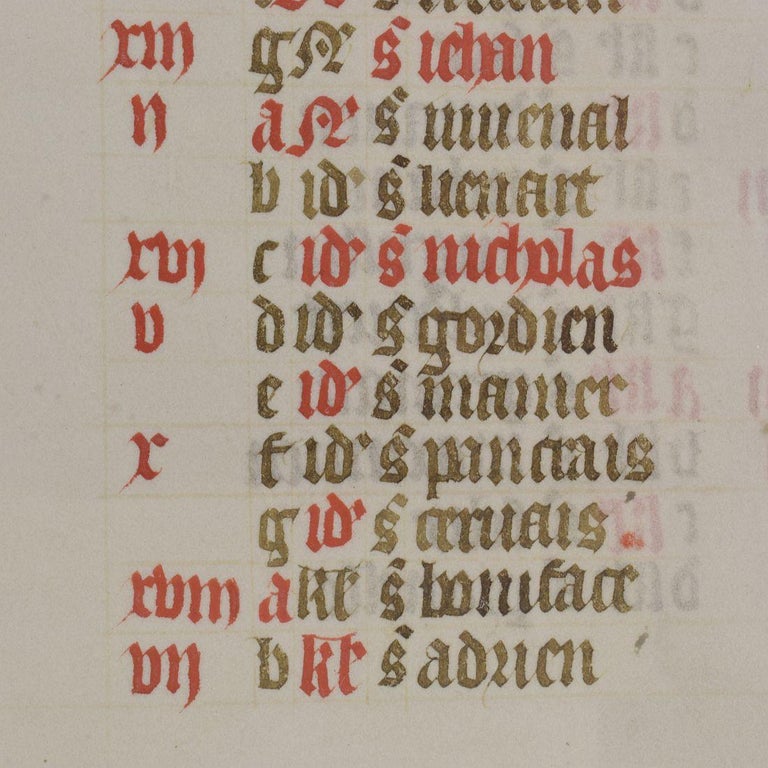 xiij g N s' iehan
ij a N s' iuuenal
b id' s' lienart
xvj c id' s' nicholas
v d id' s' gordien
e id' s' mamer
x f id' s' pancrais
g id' s' ceruais
xviij a kl' s' boniface
vij b kl' s' adrien